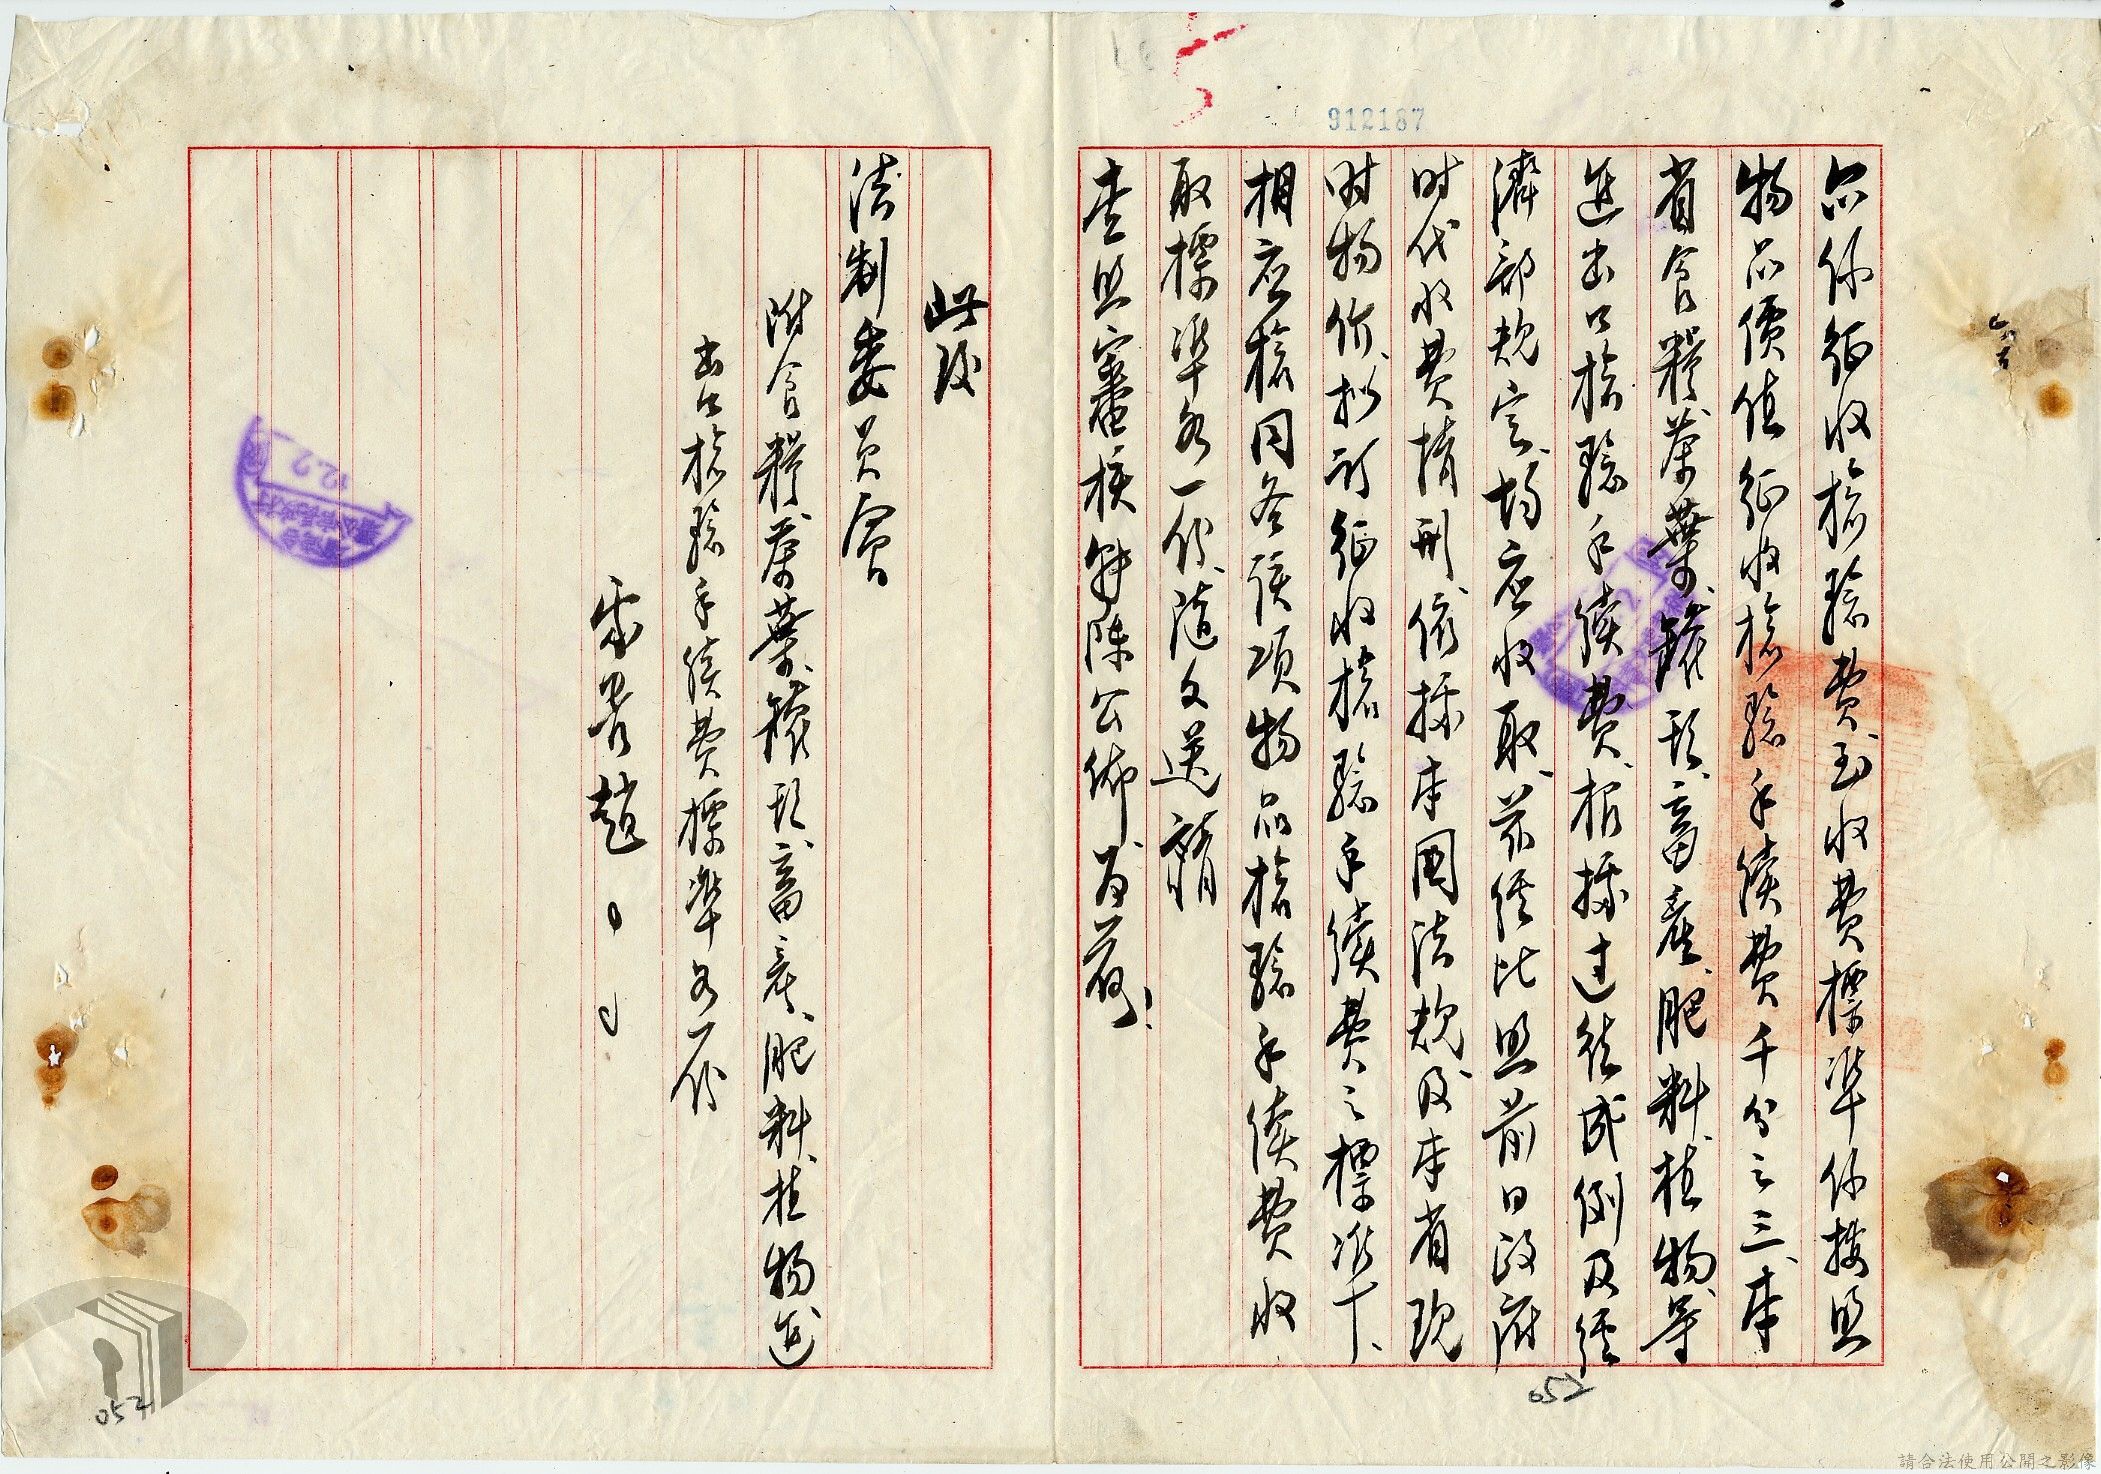 912187
品係征收檢驗費至收費標準係按照
物品價值征收檢驗手續費千分之三、本
省食糧茶葉、鏍形、畜産、肥料、植物、等
進出口檢驗手續費、根據過往成例及經
濟部規定、均應收取、茲經比照前日政府
时代收費情形、依據本國法規及本省現
时物价、拟訂征收檢驗手續費之標准下、
相应檢同各該項物品檢驗手續費收
取標準各一份、隨文送請
查照審核轉陳公佈為荷！
此致
法制委員會
附食糧茶葉、鏍形、畜産、肥料、植物進
出口檢驗手續費標準各一份
趙
052
052
請合法使用公開之影像